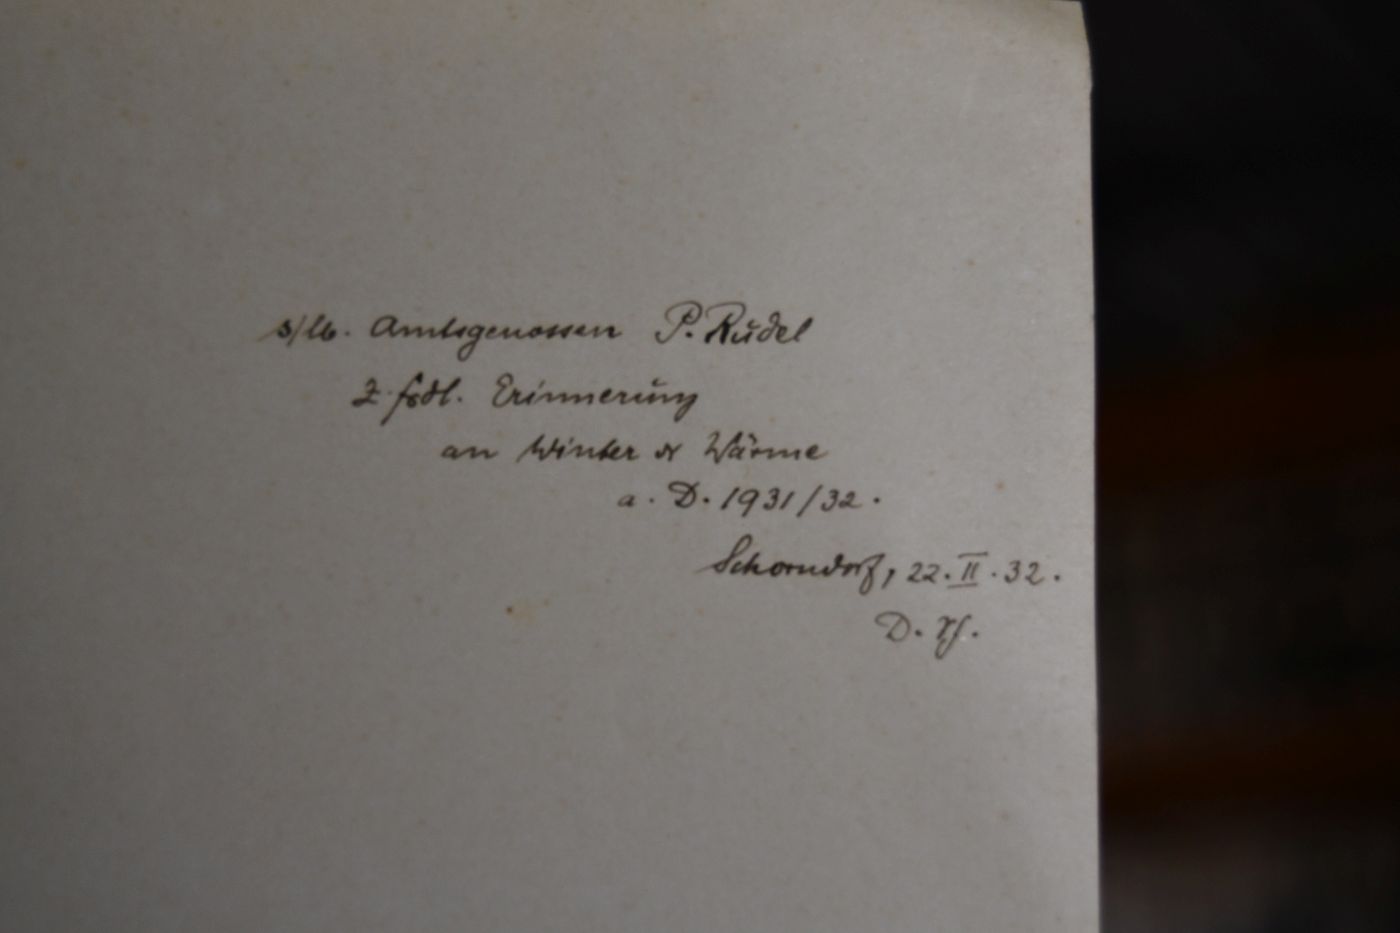 s/lb. Amtsgenossen P. Rudel
z. frdl. Erinnerung
an Winter & Wärme
a. D. 1931/32.
Schorndorf, 22.II.32.
D.